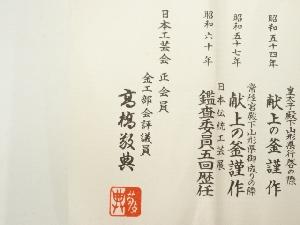 皇太子殿下山形県行啓の際
昭和五十四年 献上の釜謹作
常陸宮殿下山形県御成りの際
昭和五十七年 献上の釜謹作
日本伝統工芸展
昭和六十年 鑑査委員五回歴任
日本工芸会 正会員
金工部会評議員
高橋敬典
敬典